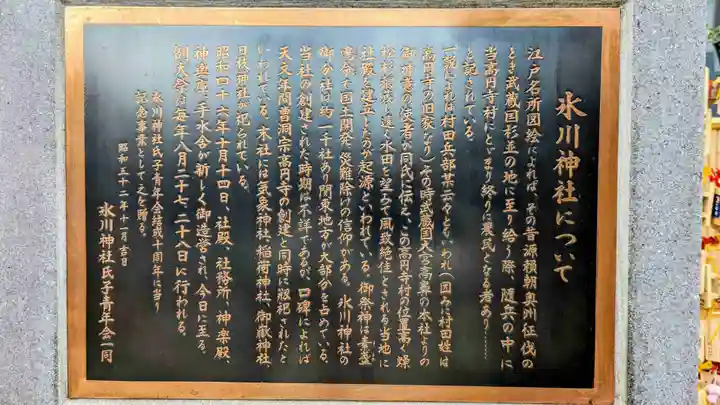 氷川神社について
江戸名所図絵によれば、その昔源頼朝奥州征伐の
とき武蔵国杉並の地に至り給う際、随兵の中に
当高円寺村にとどまり終りに農民となる者あり……
と記されている。
一説によれば村田兵部某云々ともいわれ(因みに村田姓は
高円寺の旧家なり)その時武蔵国大宮高鼻の本社よりの
御 の使者が同氏に伝え、この高円寺村の位置高く燥
松杉 く遠く水田を望みて風致絶佳とされる当地に
社殿を建立したのが起源といわれている。御祭神は素盞
嗚命で国土開発、災難除けの信仰がある。氷川神社の
御分社は約一千社あり関東地方が大部分を占めている。
当社の創建された時期は不詳であるが、口碑によれば
天文年間曹洞宗高円寺の創建と同時に勧祀されたと
いわれている。本社には気象神社、稲荷神社、御嶽神社、
日枝御社が祀られている。
昭和四十六年十月十四日、社殿、社務所、神楽殿、
神 庫、手水舎が新しく御造営され、今日に至る。
例大祭は毎年八月二十七、二十八日に行われる。
氷川神社氏子青年会結成十周年に当り
記念事業として之を贈る。
昭和五十一年十一月吉日
氷川神社氏子青年会一同